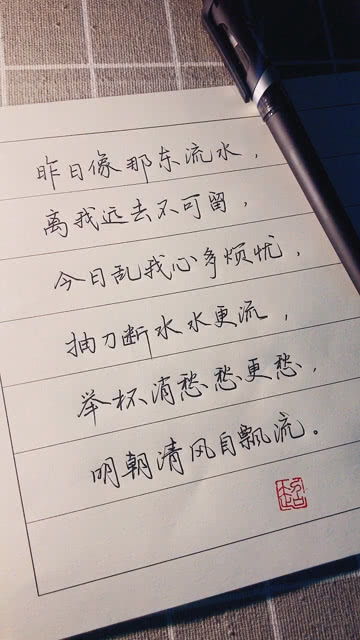 昨日像那东流水，
离我远去不可留，
今日乱我心多烦忧，
抽刀断水水更流，
举杯消愁愁更愁，
明朝清风自飘流。